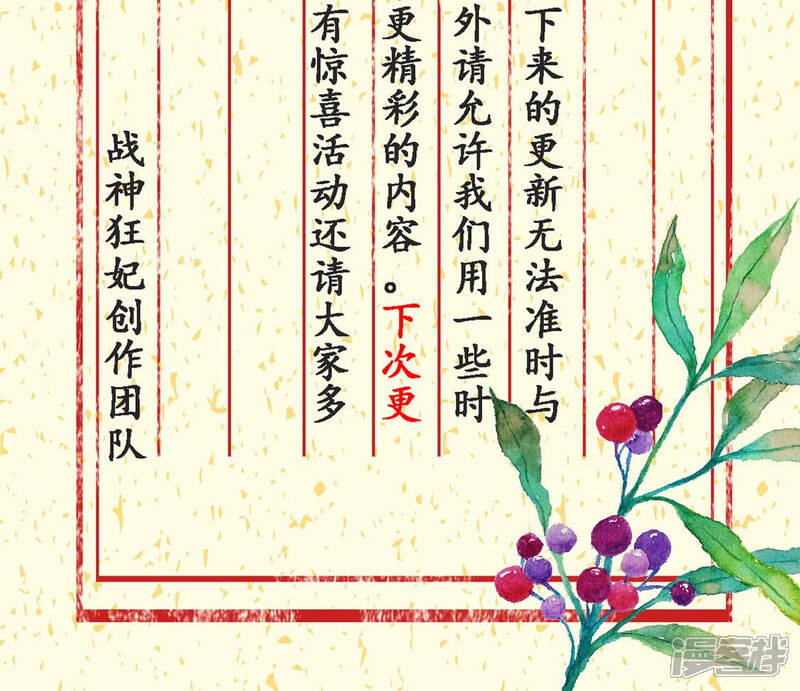 下来的更新无法准时与
外请允许我们用一些时
更精彩的内容。下次更
有惊喜活动还请大家多
战神狂妃创作团队
漫客栈